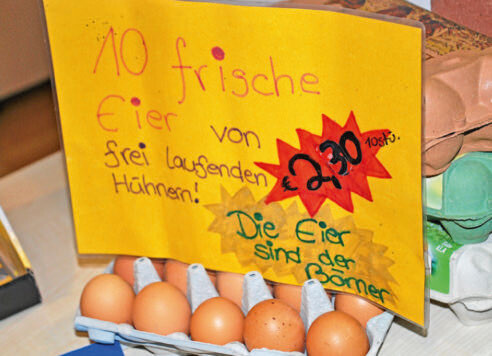 10 frische
Eier von
frei laufenden
Hühnern!
€ 2,30 10stü.
Die Eier
sind der
Börner